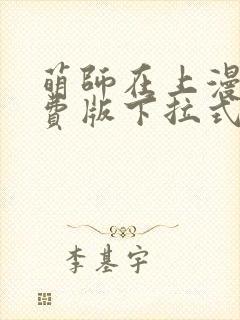 萌師在上漫
費版下拉式
李基宇